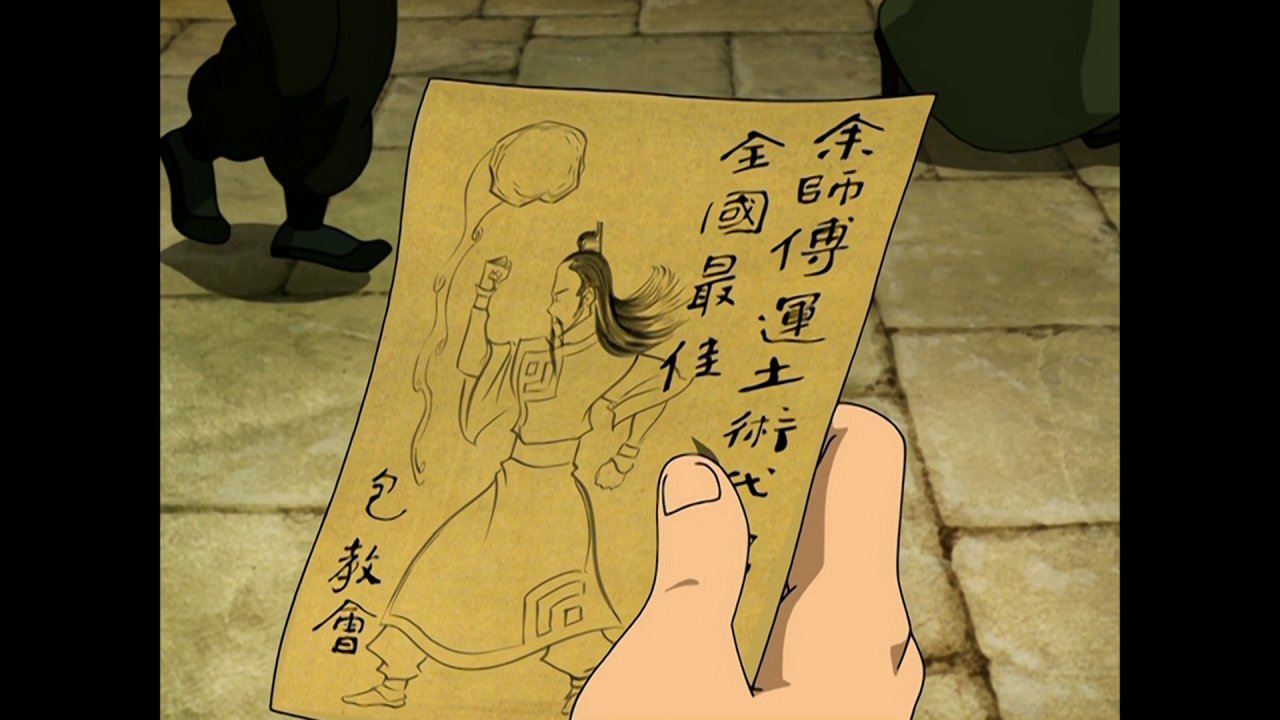 余師傅運土術代
全國最佳
包教會